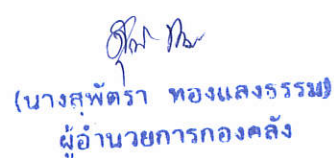 (นางสุพัตรา ทองแสงธรรม)
ผู้อำนวยการกองคลัง